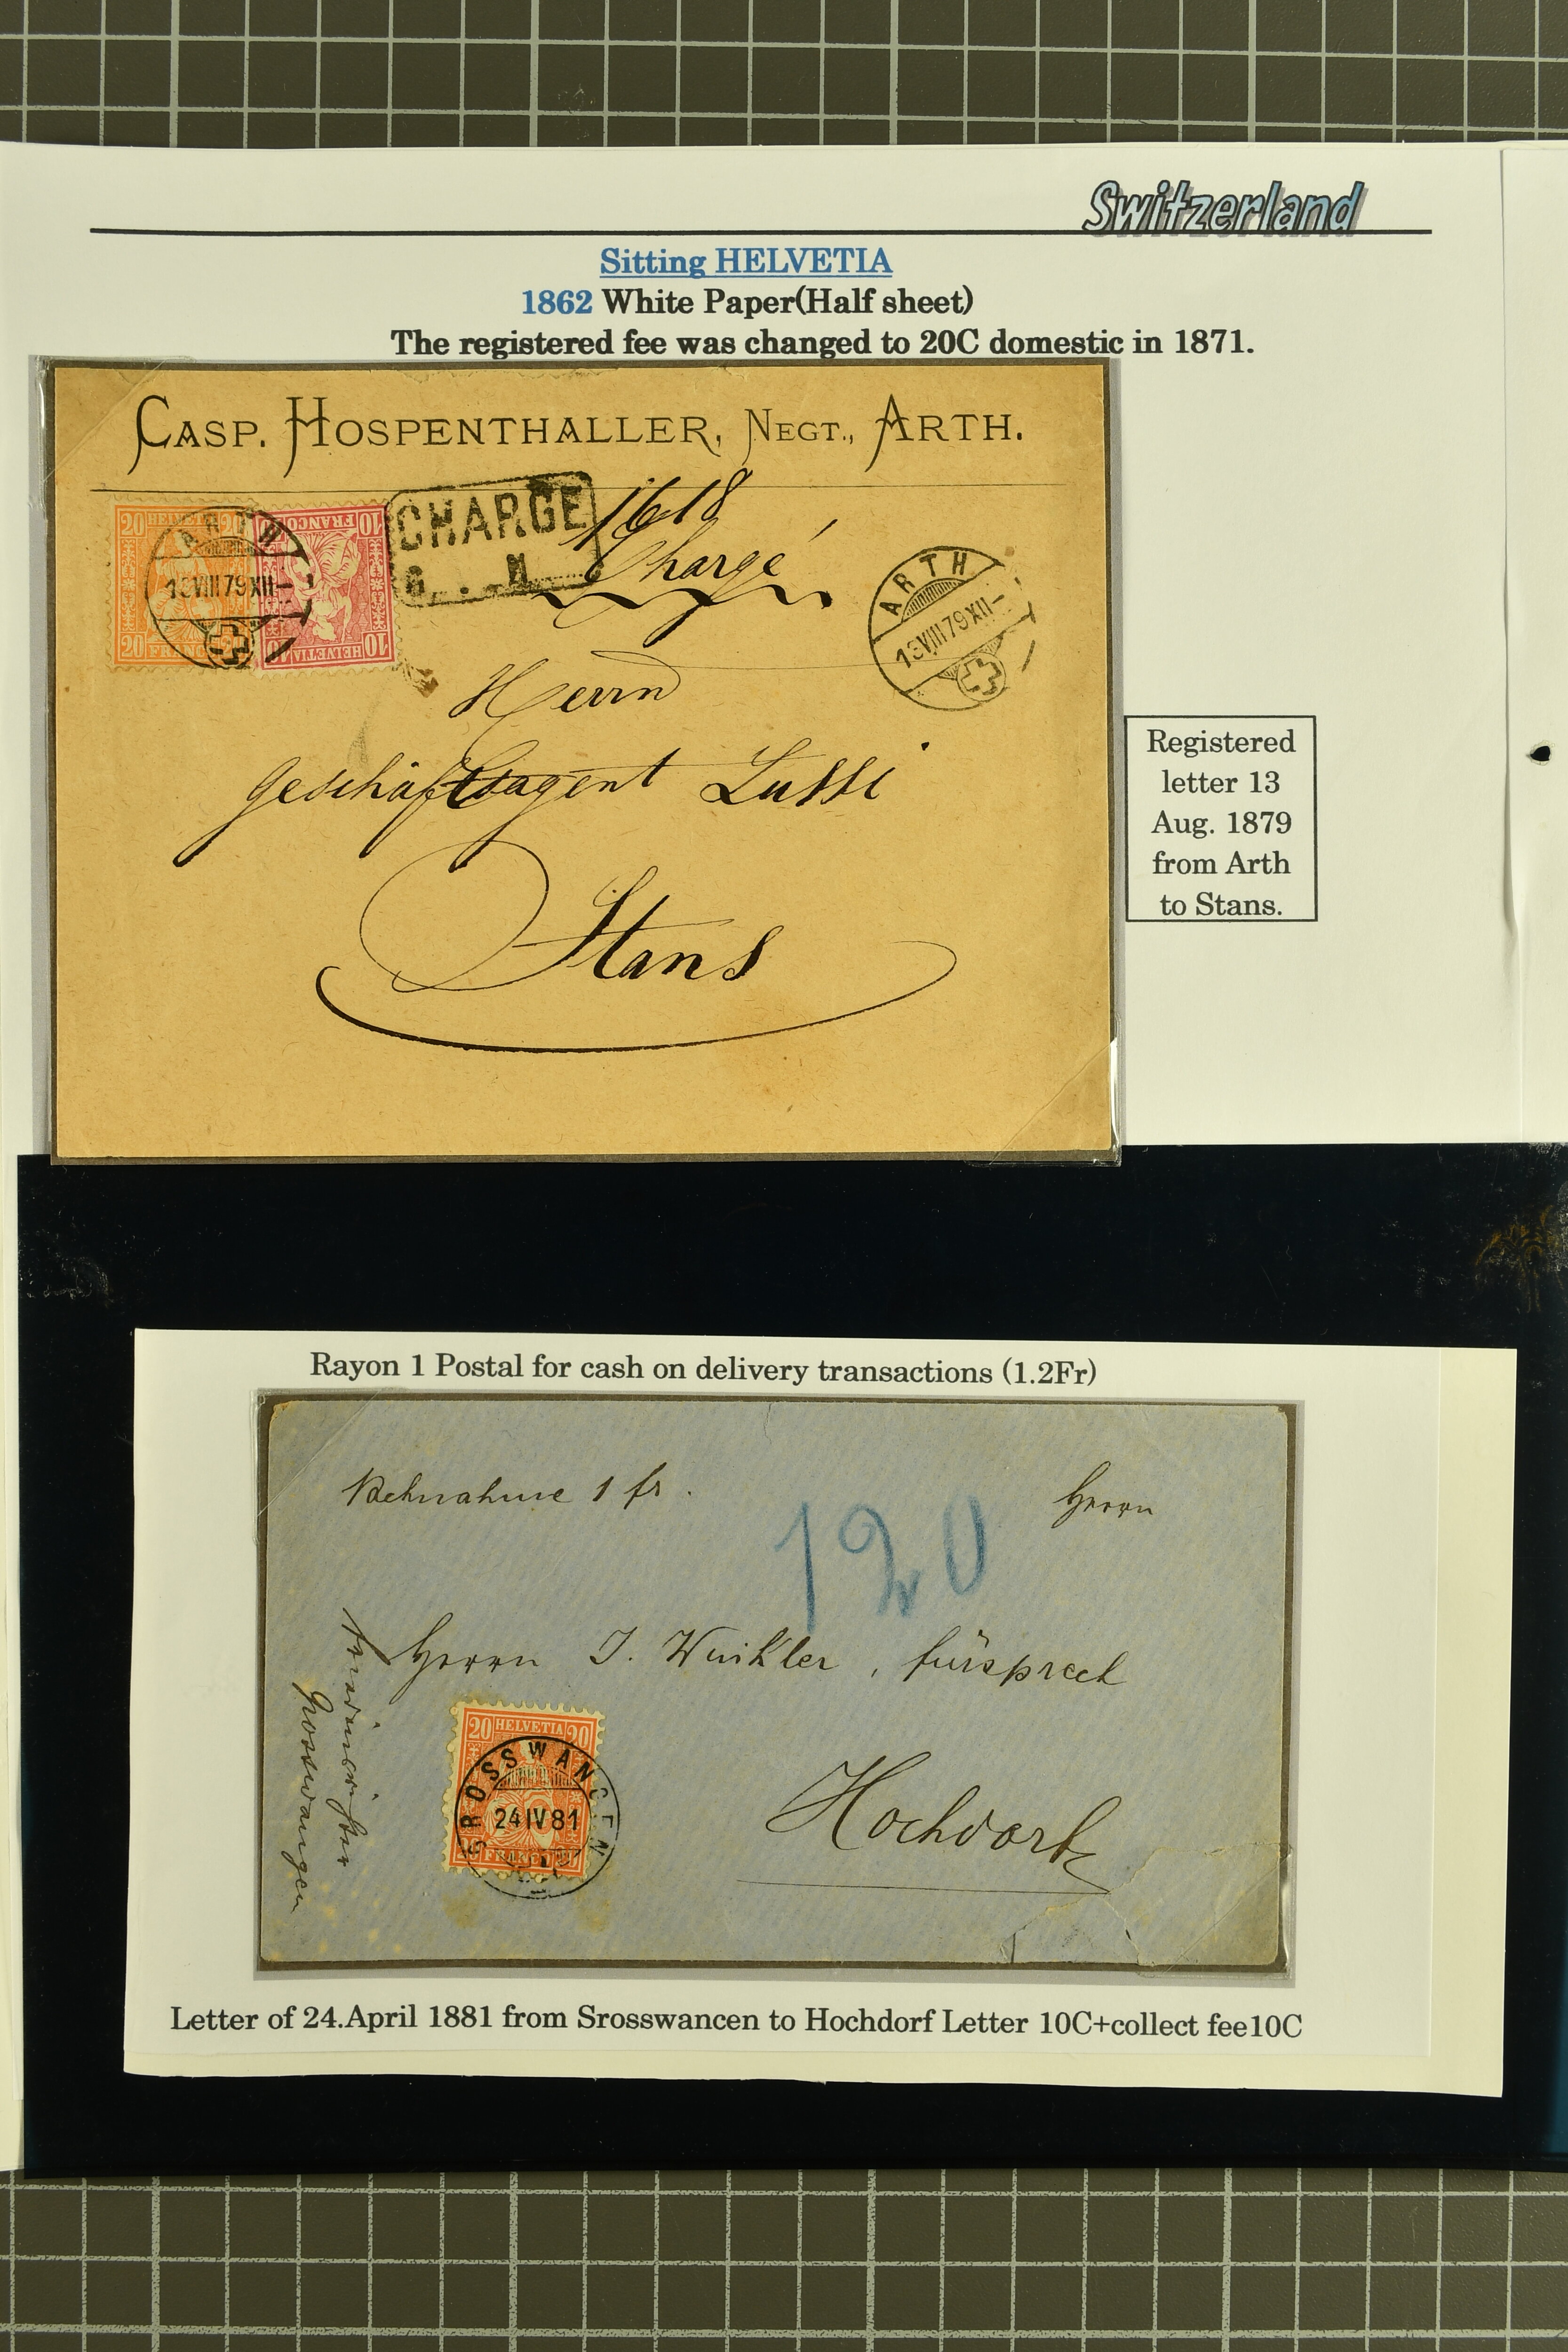 Switzerland
Sitting HELVETIA
1862 White Paper(Half sheet)
The registered fee was changed to 20C domestic in 1871.
CASP. HOSPENTHALLER, NEGT., ARTH.
20 HELVETIA 20
20 FRANCO
10 FRANCO
10 HELVETIA 10
ARTH
13 VIII 79 XII-
CHARGE
G . N
1618
Chargé
ARTH
13 VIII 79 XII-
Herrn
Geschäftsagent Lussi
Stans
Registered
letter 13
Aug. 1879
from Arth
to Stans.
Rayon 1 Postal for cash on delivery transactions (1.2Fr)
Nachnahme 1 fr.
Herrn
120
Herrn J. Winkler, fürsprech
Hochdorf
Grosswangen
20 HELVETIA 20
FRANCO
GROSSWANGEN
24 IV 81
Letter of 24.April 1881 from Srosswancen to Hochdorf Letter 10C+collect fee10C